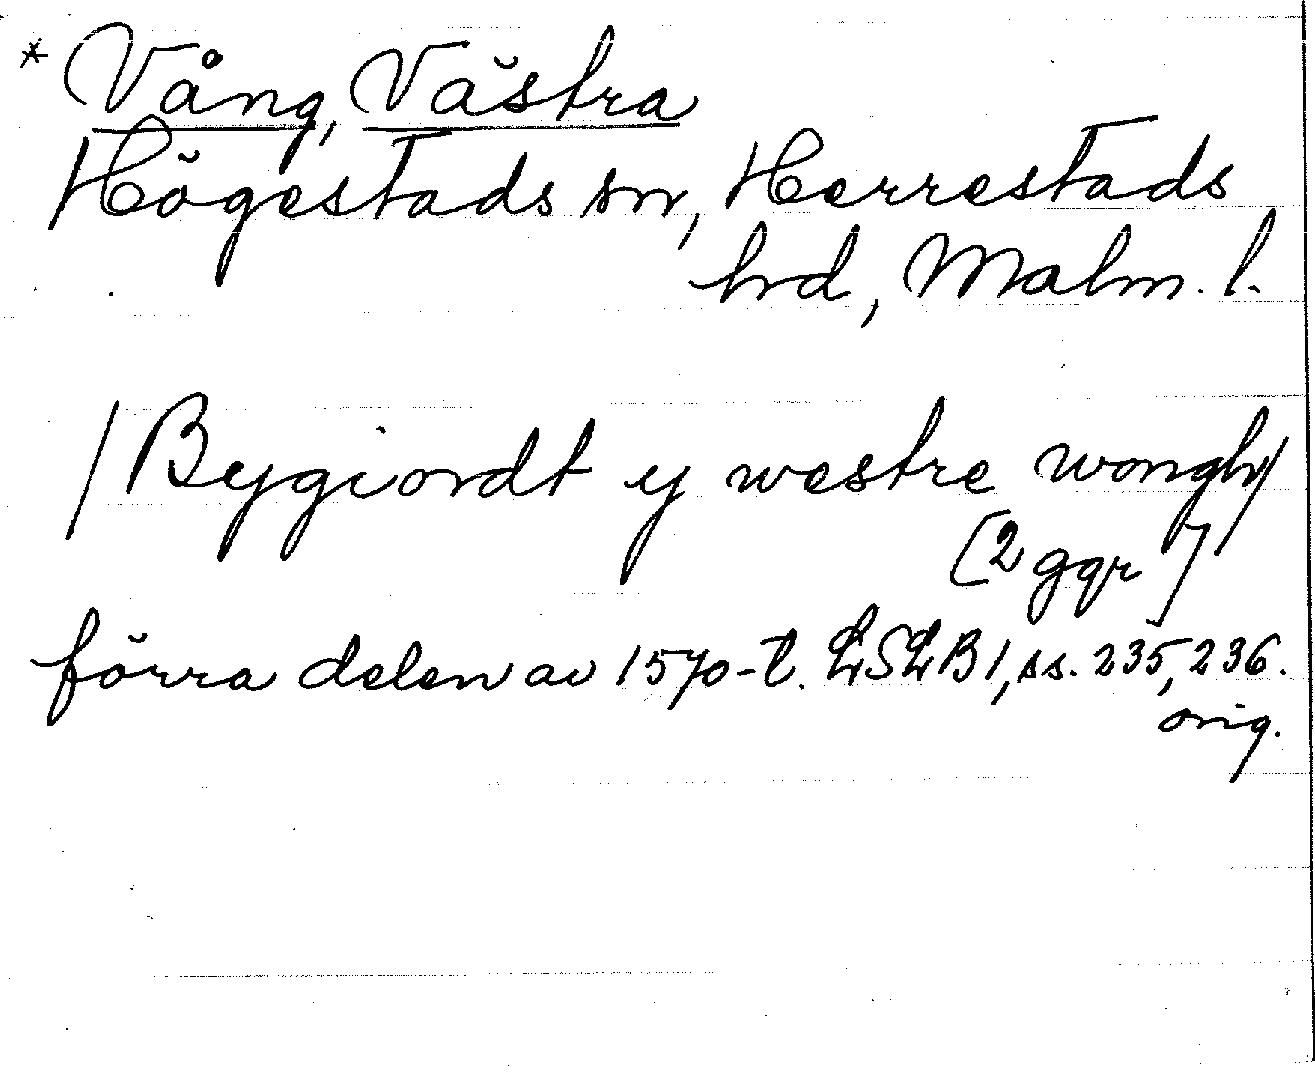 * Vång, Västra
Högestads sn, Herrestads
hrd, Malm. l.
/Bygiordt y westre wongh/
[2 ggr]
förra delen av 1570-t. LSLB 1, ss. 235, 236.
orig.